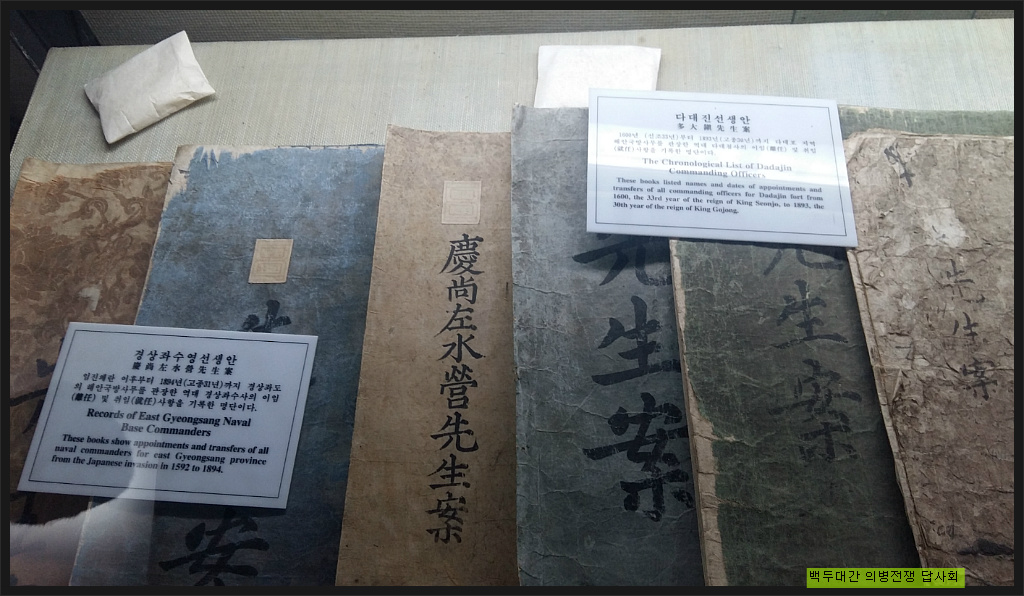 다대진선생안
多大鎭先生案
1600년 (선조33년)부터 1893년(고종30년)까지 다대포 지역
해안국방사무를 관장한 역대 다대첨사의 이임(離任) 및 취임
(就任)사항을 기록한 명단이다.
The Chronological List of Dadajin
Commanding Officers
These books listed names and dates of appointments and
transfers of all commanding officers for Dadajin fort from
1600, the 33rd year of the reign of King Seonjo, to 1893, the
30th year of the reign of King Gojong.
경상좌수영선생안
慶尙左水營先生案
임진왜란 이후부터 1894년(고종31년)까지 경상좌도
의 해안국방사무를 관장한 역대 경상좌수사의 이임
(離任) 및 취임(就任)사항을 기록한 명단이다.
Records of East Gyeongsang Naval
Base Commanders
These books show appointments and transfers of all
naval commanders for east Gyeongsang province
from the Japanese invasion in 1592 to 1894.
案
慶尙左水營先生案
先生案
先生案
先生案
백두대간 의병전쟁 답사회